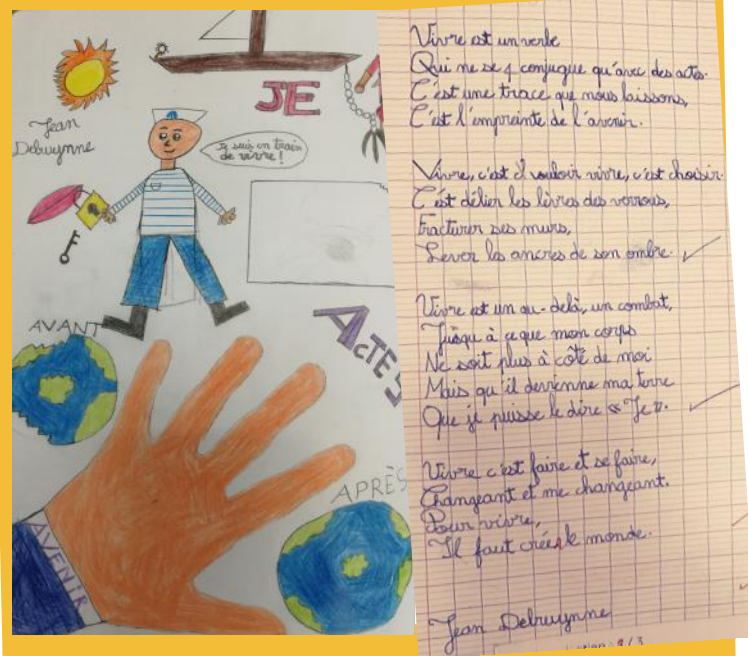 JE
Jean
Debruynne
Je suis en train
de vivre !
AVANT
ACTES
APRÈS
AVENIR
Vivre est un verbe
Qui ne se conjugue qu'avec des actes.
C'est une trace que nous laissons,
C'est l'empreinte de l'avenir.
Vivre, c'est vouloir vivre, c'est choisir.
C'est délier les lèvres des verrous,
Fracturer ses murs,
Lever les ancres de son ombre.
Vivre est un au-delà, un combat,
Jusqu'à ce que mon corps
Ne soit plus à côté de moi
Mais qu'il devienne ma terre
Que je puisse le dire « Je ».
Vivre c'est faire et se faire,
Changeant et me changeant.
Pour vivre,
Il faut créer le monde.
Jean Debruynne